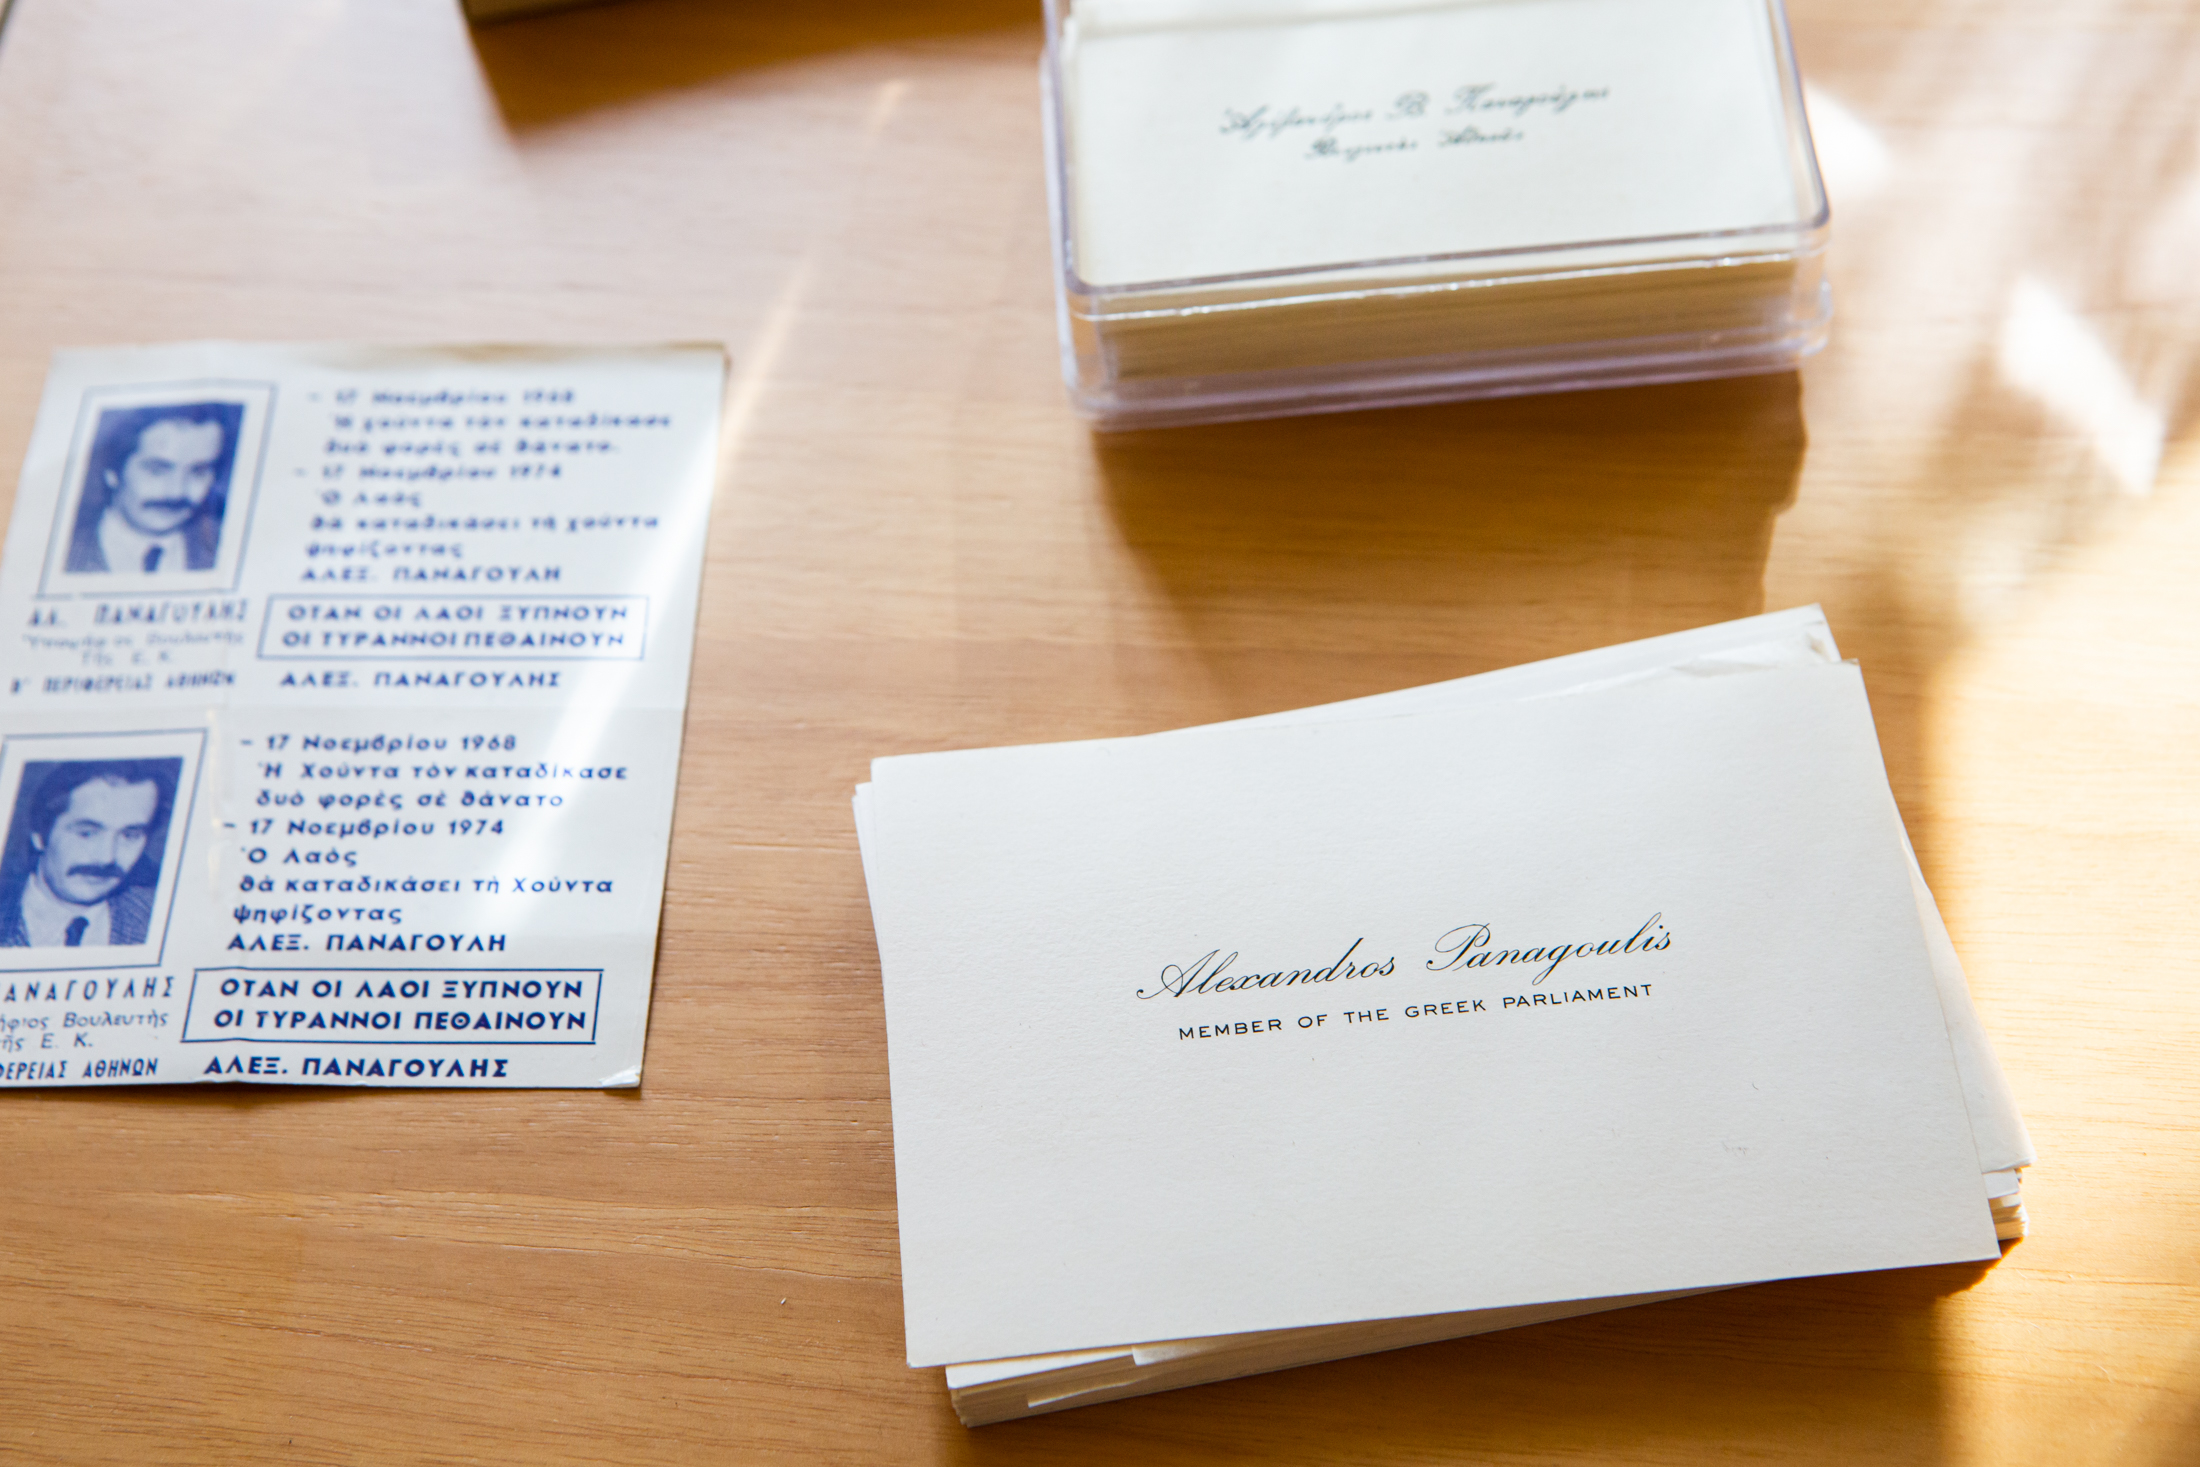 Ἀλέξανδρος Β. Παναγούλης
Βουλευτὴς Ἀθηνῶν
- 17 Νοεμβρίου 1968
Ἡ χούντα τὸν καταδίκασε
δυὸ φορὲς σὲ θάνατο.
- 17 Νοεμβρίου 1974
Ὁ Λαὸς
θὰ καταδικάσει τὴ χούντα
ψηφίζοντας
ΑΛΕΞ. ΠΑΝΑΓΟΥΛΗ
ΑΛ. ΠΑΝΑΓΟΥΛΗΣ
Ὑποψήφιος Βουλευτὴς
τῆς Ε. Κ.
Β' ΠΕΡΙΦΕΡΕΙΑΣ ΑΘΗΝΩΝ
ΟΤΑΝ ΟΙ ΛΑΟΙ ΞΥΠΝΟΥΝ
ΟΙ ΤΥΡΑΝΝΟΙ ΠΕΘΑΙΝΟΥΝ
ΑΛΕΞ. ΠΑΝΑΓΟΥΛΗΣ
- 17 Νοεμβρίου 1968
Ἡ Χούντα τὸν καταδίκασε
δυὸ φορὲς σὲ θάνατο
- 17 Νοεμβρίου 1974
Ὁ Λαὸς
θὰ καταδικάσει τὴ Χούντα
ψηφίζοντας
ΑΛΕΞ. ΠΑΝΑΓΟΥΛΗ
ΑΝΑΓΟΥΛΗΣ
ήφιος Βουλευτὴς
τῆς Ε. Κ.
ΦΕΡΕΙΑΣ ΑΘΗΝΩΝ
ΟΤΑΝ ΟΙ ΛΑΟΙ ΞΥΠΝΟΥΝ
ΟΙ ΤΥΡΑΝΝΟΙ ΠΕΘΑΙΝΟΥΝ
ΑΛΕΞ. ΠΑΝΑΓΟΥΛΗΣ
Alexandros Panagoulis
MEMBER OF THE GREEK PARLIAMENT